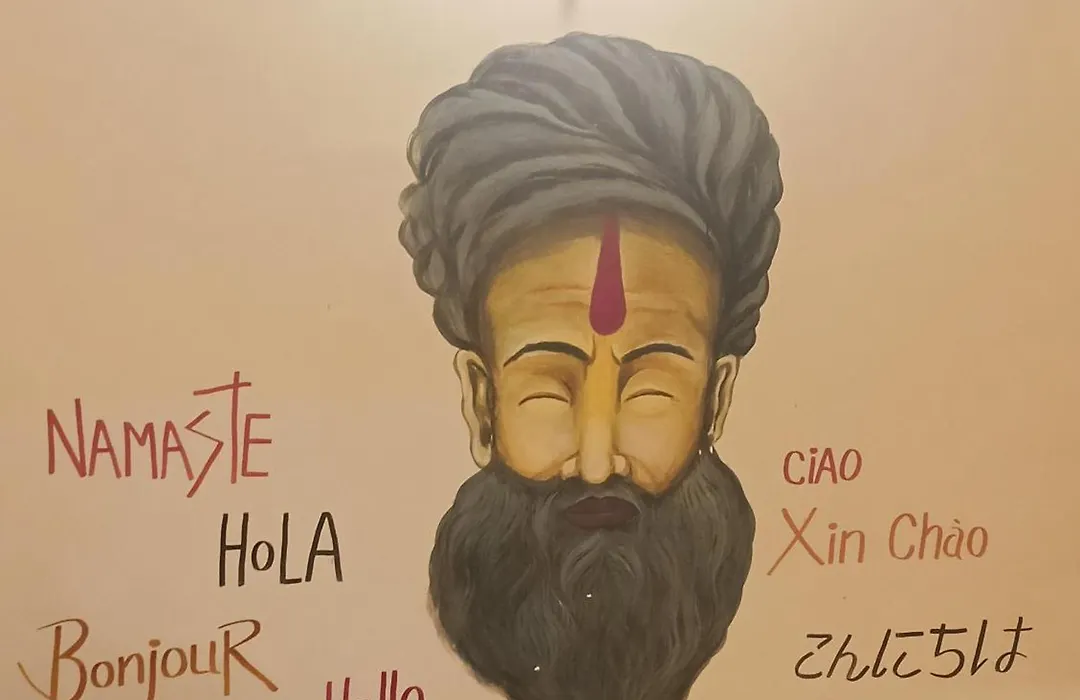 NAMASTE
HoLA
BonjouR
Hello
CiAO
Xin Chào
こんにちは